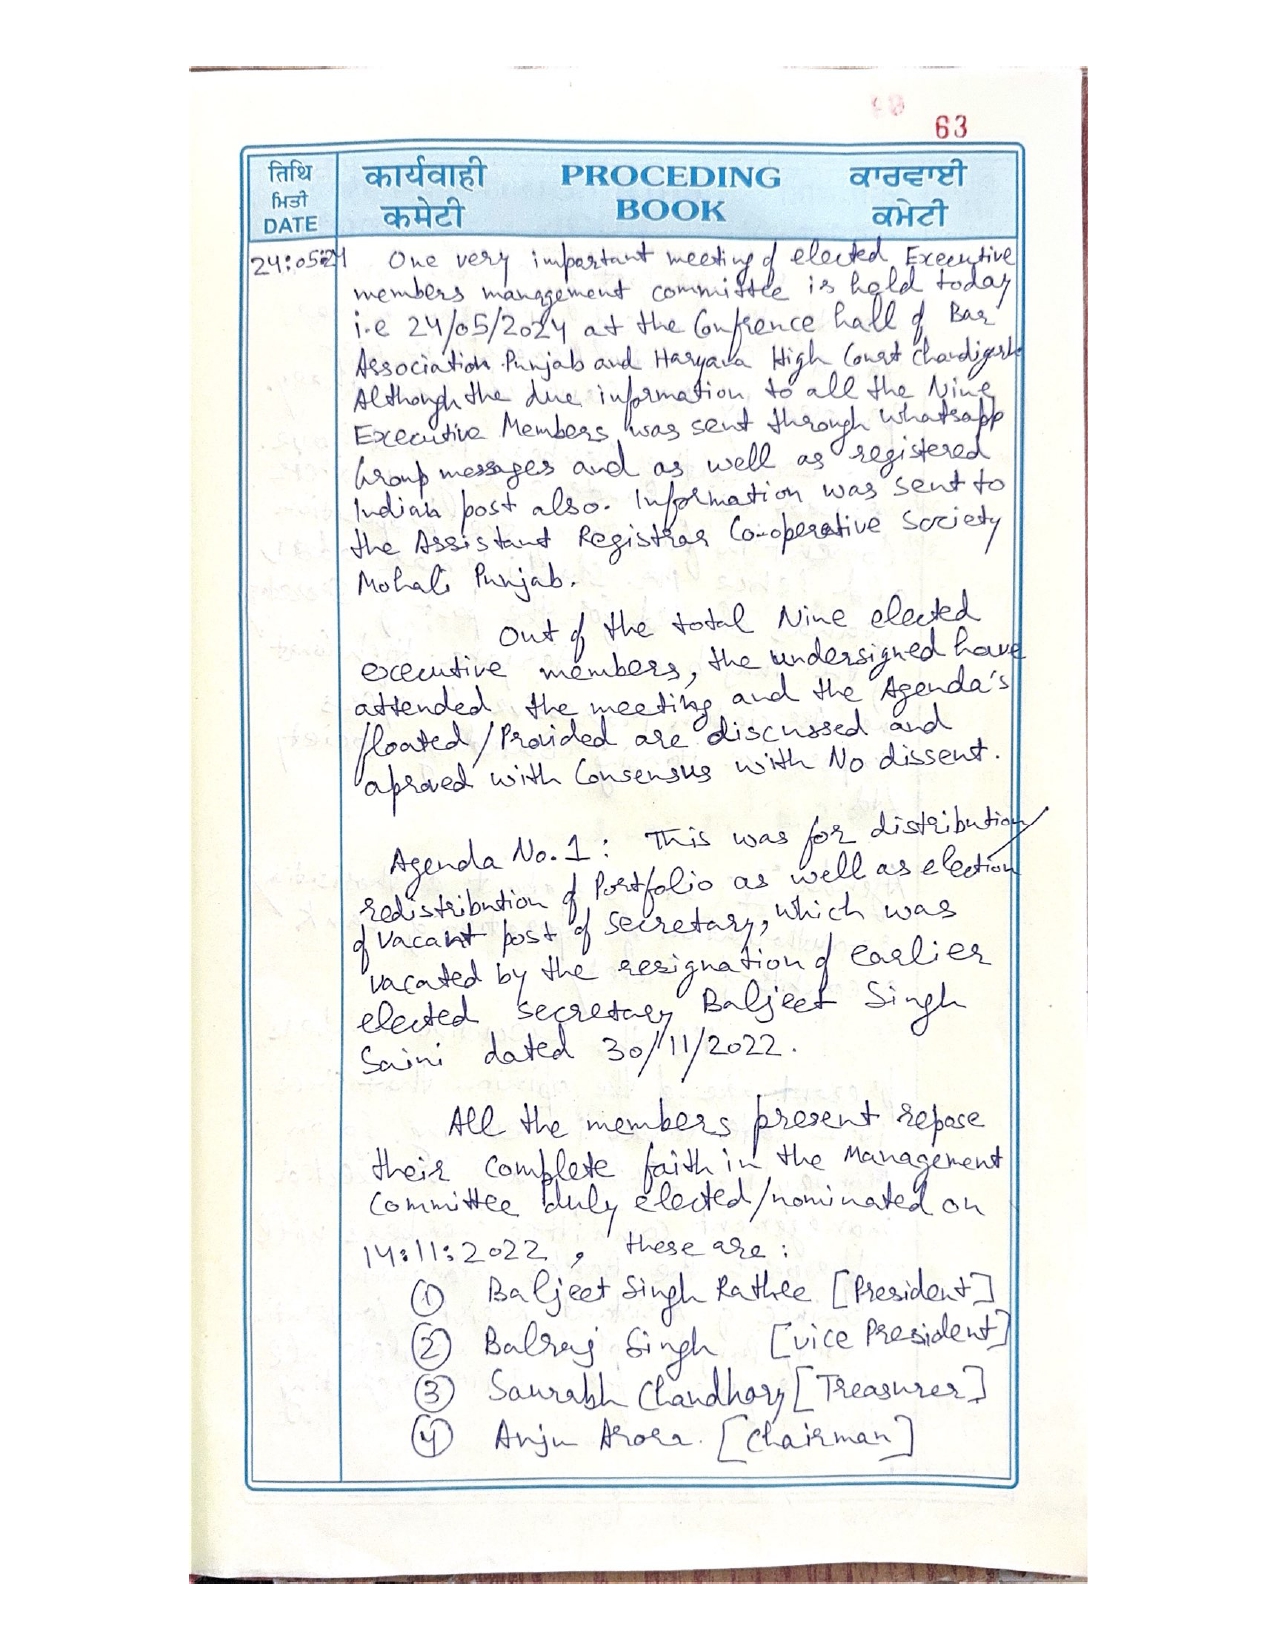 63
तिथि
ਮਿਤੀ
DATE
कार्यवाही PROCEDING ਕਾਰਵਾਈ
कमेटी BOOK ਕਮੇਟੀ
24:05:24 One very important meeting of elected Executive
members management committee is held today
i.e 24/05/2024 at the Confrence hall of Bar
Association Punjab and Haryana High Court Chandigarh
Although the due information to all the Nine
Executive Members was sent through whatsapp
Group messages and as well as registered
Indian post also. Information was sent to
the Assistant Registrar Co-operative Society
Mohali Punjab.
Out of the total Nine elected
executive members, the undersigned have
attended the meeting and the Agenda's
floated/Provided are discussed and
aproved with Consensus with No dissent.
Agenda No. 1: This was for distribution/
redistribution of Portfolio as well as election
of vacant post of secretary, which was
vacated by the resignation of earlier
elected secretary Baljeet Singh
Saini dated 30/11/2022.
All the members present repose
their complete faith in the Management
Committee duly elected/nominated on
14:11:2022, these are:
① Baljeet Singh Rathee [President]
② Balraj Singh [vice President]
③ Saurabh Chaudhary [Treasurer]
④ Anju Arora. [Chairman]